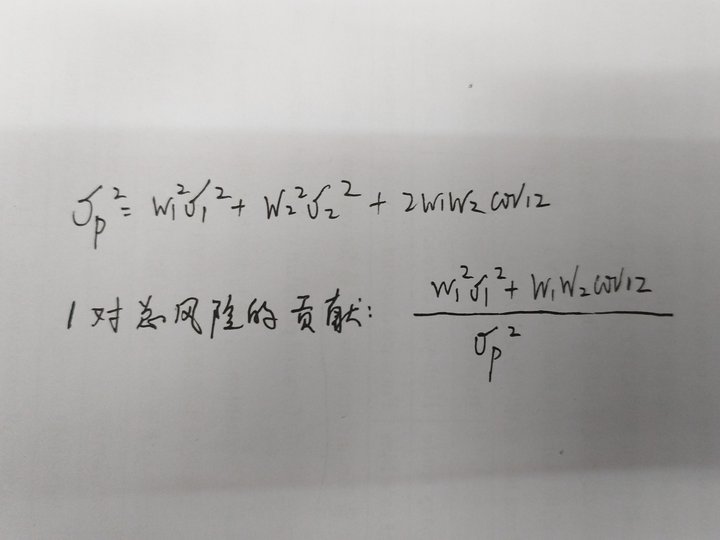 σp² = w₁²σ₁² + w₂²σ₂² + 2w₁w₂cov₁₂
1对总风险的贡献: (w₁²σ₁² + w₁w₂cov₁₂) / σp²